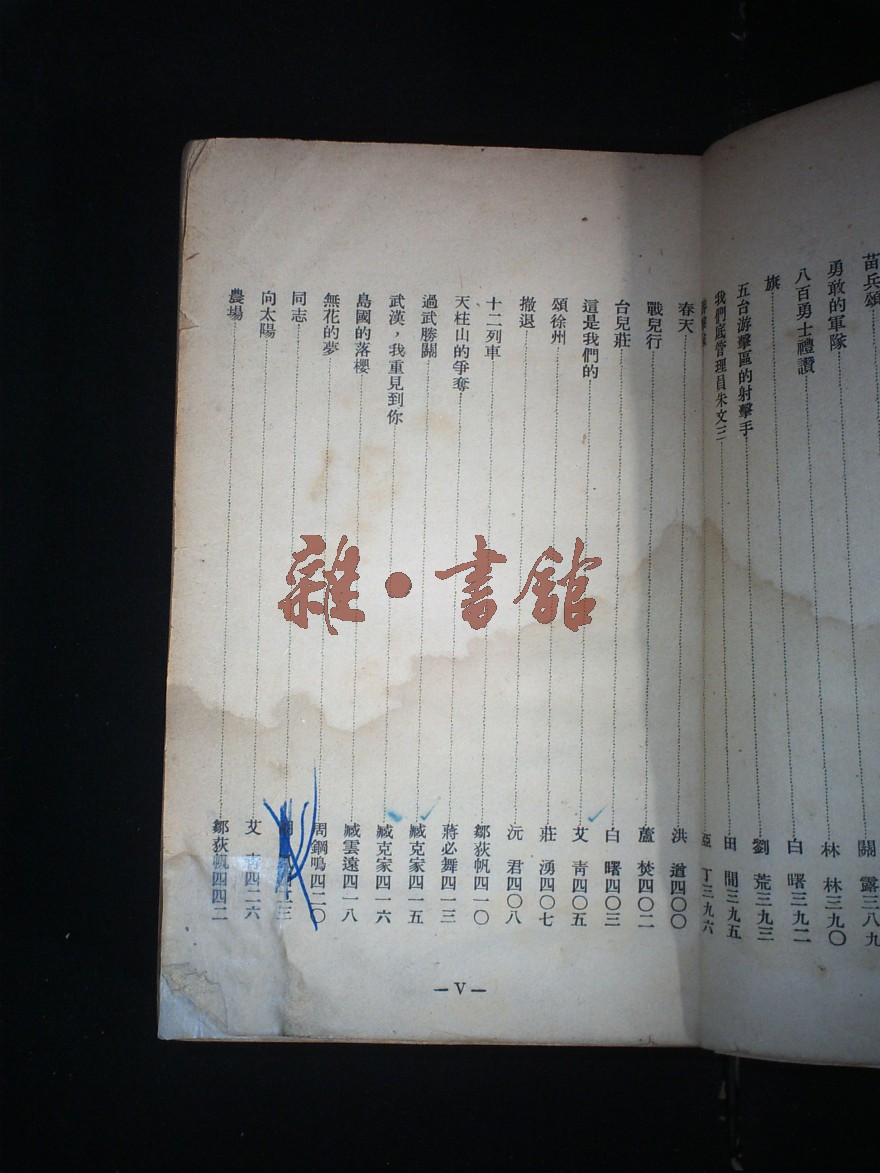 苗兵頌 關露三八九
勇敢的軍隊 林林三九〇
八百勇士禮讚 白曙三九二
旗 劉荒三九三
五台游擊區的射擊手 田間三九五
我們底管理員朱文三 亞丁三九六
春天 洪遒四〇〇
戰兒行 蘆焚四〇二
台兒莊 白曙四〇三
這是我們的 艾青四〇五
頌徐州 莊湧四〇七
撤退 沅君四〇八
十二列車 鄒荻帆四一〇
天柱山的爭奪 蔣必舞四一三
過武勝關 臧克家四一五
武漢，我重見到你 臧克家四一六
島國的落櫻 臧雲遠四一八
無花的夢 周鋼鳴四二〇
同志
向太陽 艾青四二六
農場 鄒荻帆四四二
—V—
雜·書館